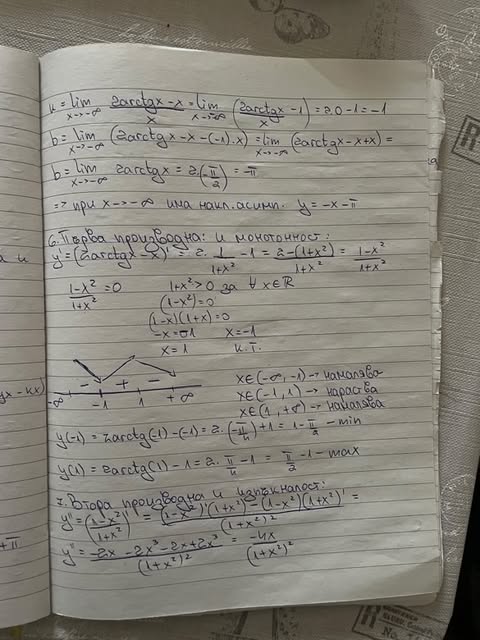 k = lim x→-∞ (2arctgx - x)/x = lim x→-∞ (2arctgx/x - 1) = 2.0 - 1 = -1
b = lim x→-∞ (2arctgx - x - (-1).x) = lim x→-∞ (2arctgx - x + x) =
b = lim x→-∞ 2arctgx = 2.(-π/2) = -π
=> при x→-∞ има накл. асимп. y = -x - π
6. Първа производна: и монотонност:
y' = (2arctgx - x)' = 2. 1/(1+x²) - 1 = (2-(1+x²))/(1+x²) = (1-x²)/(1+x²)
(1-x²)/(1+x²) = 0 1+x² > 0 за ∀ x∈ℝ
(1-x²) = 0
(1-x)(1+x) = 0
-x = -1 x = -1
x = 1 к.т.
- + -
-∞ -1 1 +∞
x∈(-∞, -1) → намалява
x∈(-1, 1) → нараства
x∈(1, +∞) → намалява
y(-1) = 2arctg(-1) - (-1) = 2.(-π/4) + 1 = 1 - π/2 - min
y(1) = 2arctg(1) - 1 = 2. π/4 - 1 = π/2 - 1 - max
7. Втора производна и изпъкналост:
y'' = ((1-x²)/(1+x²))' = ((1-x²)'(1+x²) - (1-x²)(1+x²)')/(1+x²)² =
y'' = (-2x - 2x³ - 2x + 2x³)/(1+x²)² = -4x/(1+x²)²